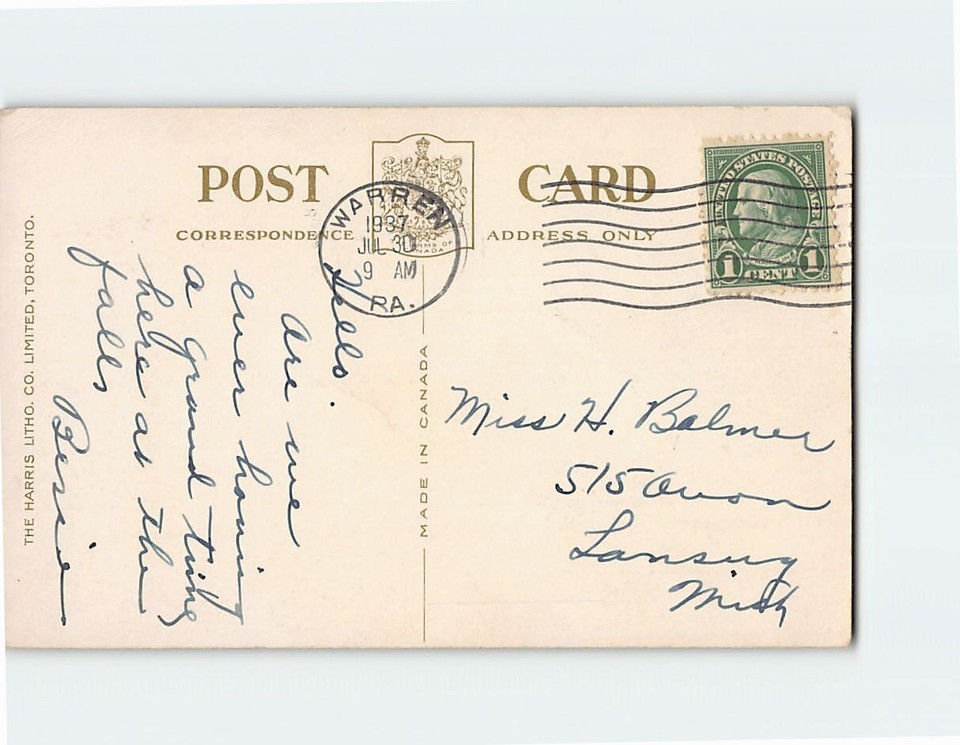 POST CARD
CORRESPONDENCE ADDRESS ONLY
ARMS OF
CANADA
WARREN
1937
JUL 30
9 AM
PA.
UNITED STATES POSTAGE
1 CENT 1
THE HARRIS LITHO. CO. LIMITED, TORONTO.
MADE IN CANADA
Hello.
Are we
ever having
a grand time
here at the
falls
Bessie
Miss H. Balmer
515 Avon
Lansing
Mich